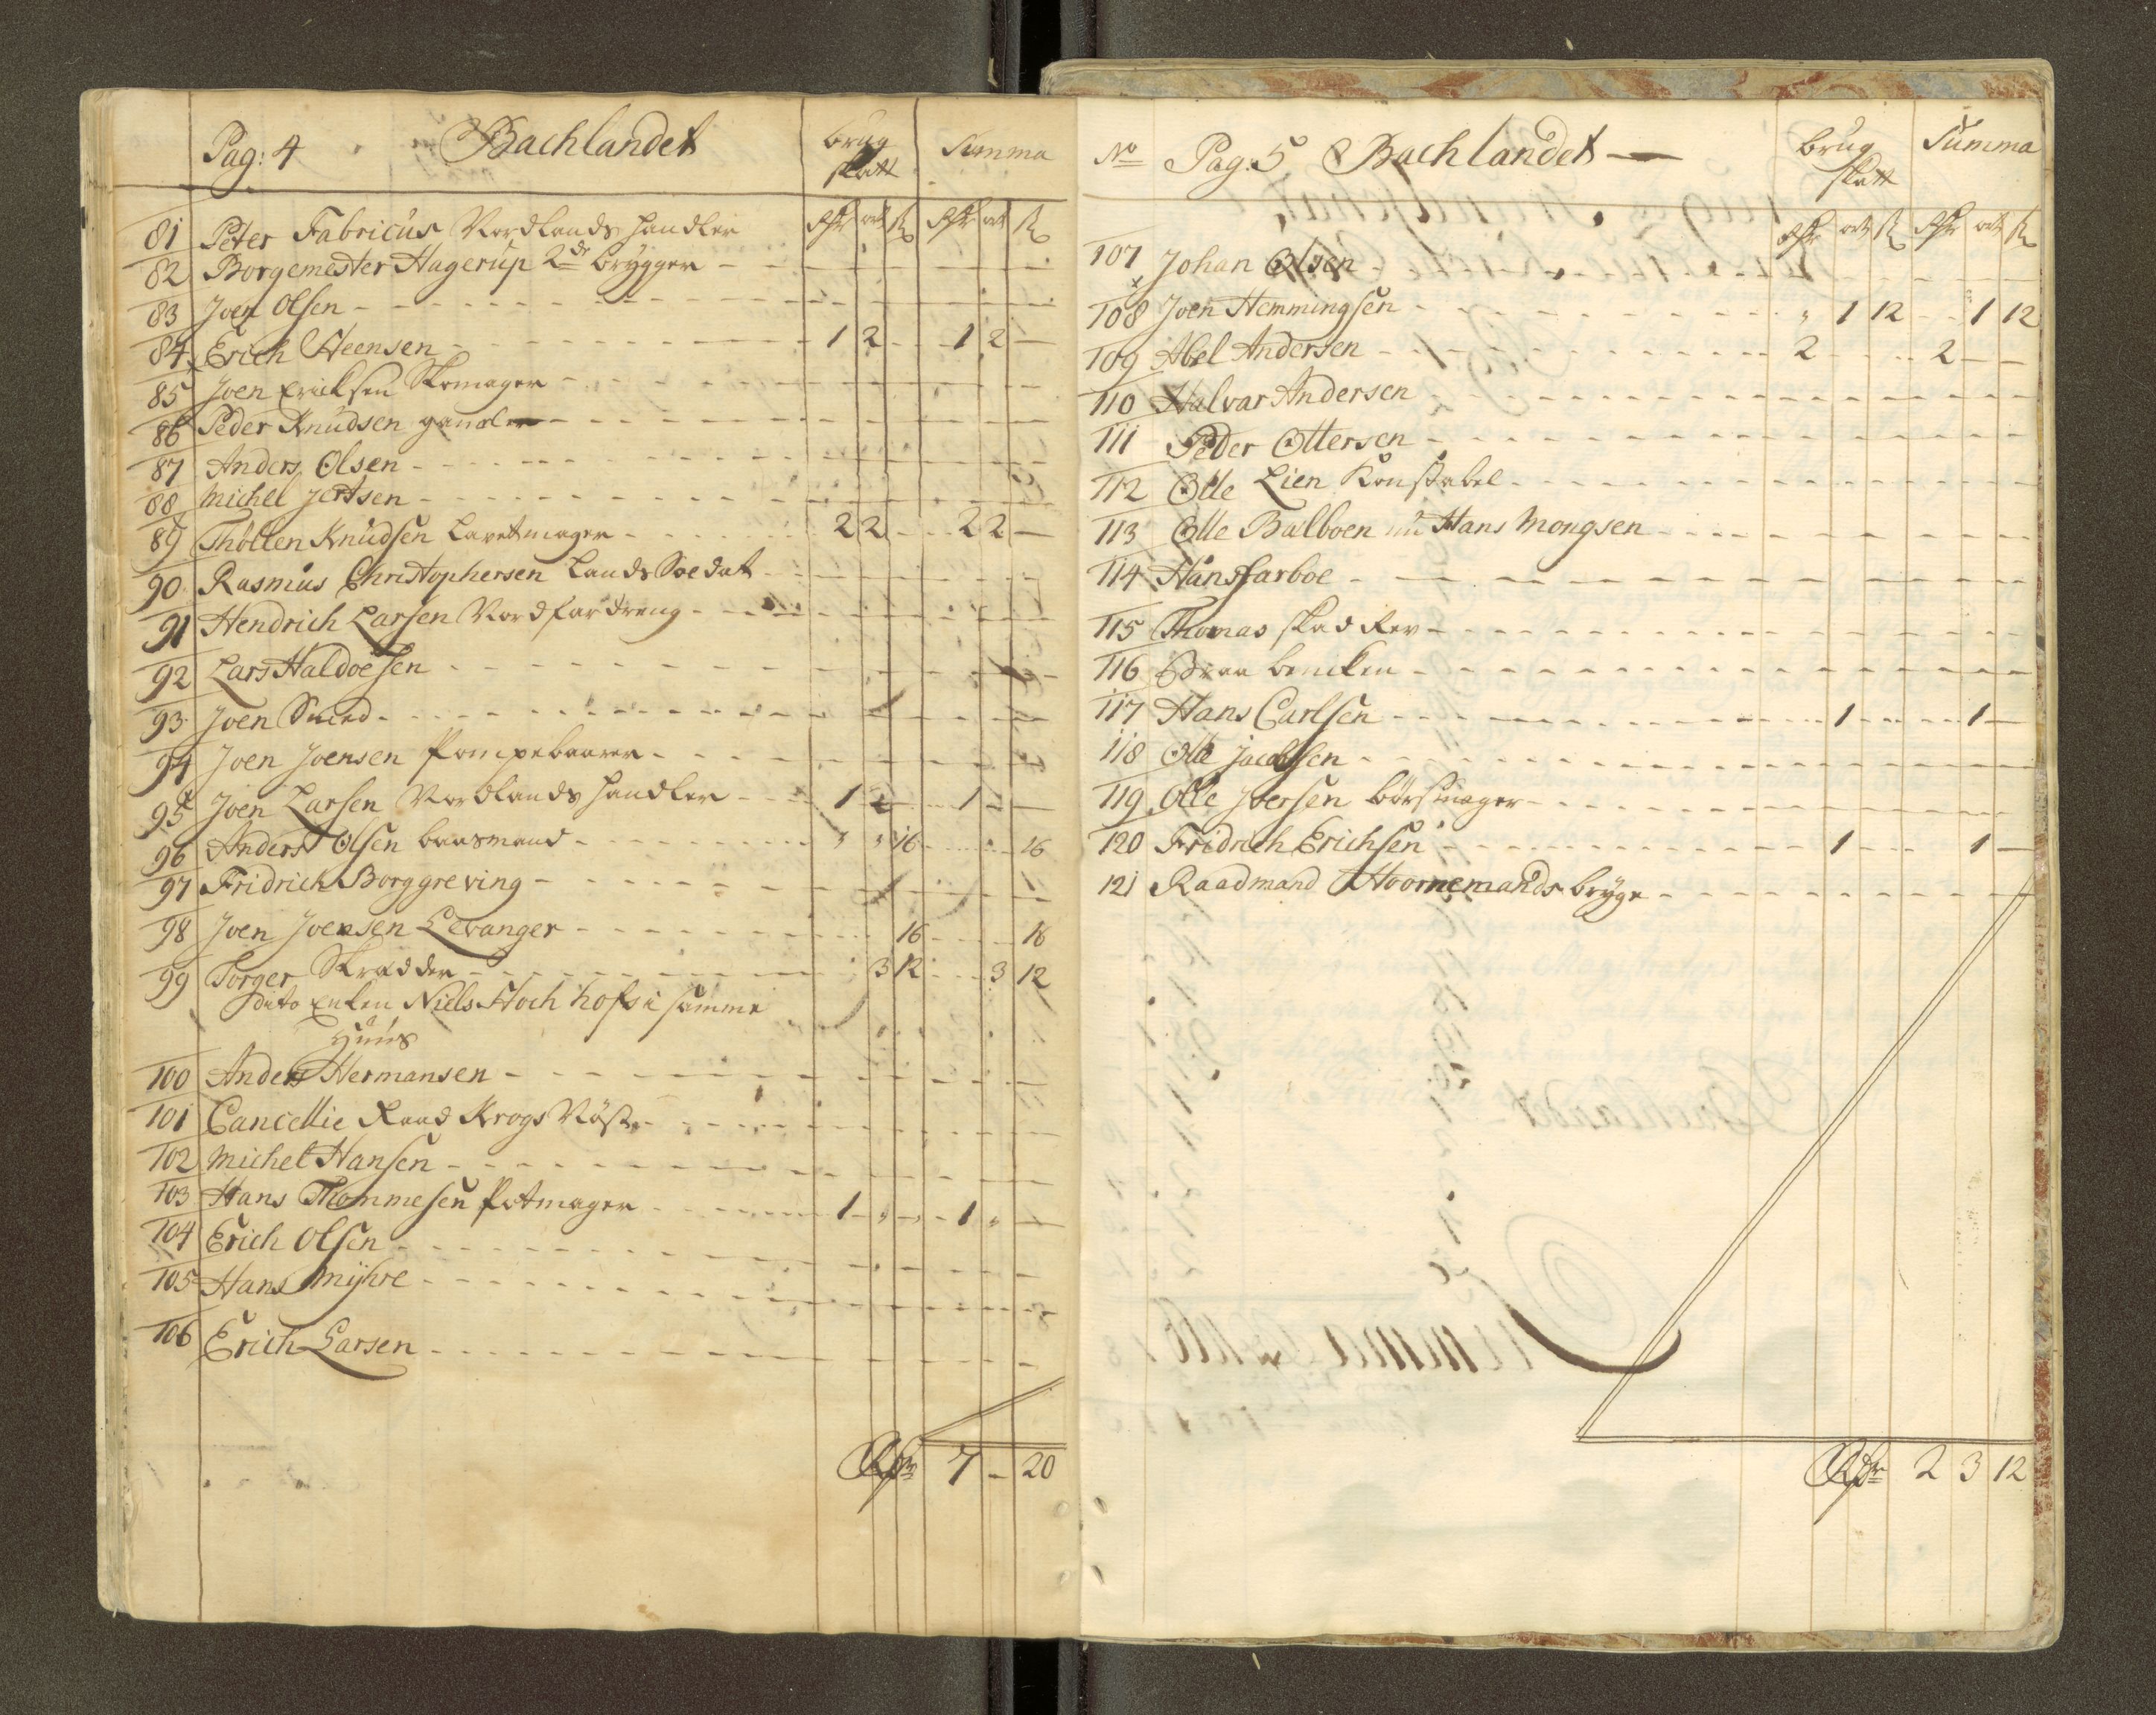 Pag: 4 Bachlandet brug skatt Summa
Rdr ort ß Rdr ort ß
81 Peter Fabricüs Nordlands Handler
82 Borgemester Hagerüp 2de brygger
83 Joen Olsen
84 Erich Steensen 1 2 1 2
85 Joen Ericksen Skomager
86 Peder Knüdsen
87 Anders Olsen
88 Michel Jertsen
89 Thollen Knüdsen Lavetmager 2 2 2 2
90 Rasmüs Christophersen Lands Soldat
91 Hendrich Larsen Nordfardreng
92 Lars Haldoesen
93 Joen Smed
94 Joen Joensen Pompebaarer
95 Joen Larsen Nordlands Handler 1 1
96 Anders Olsen baasmand 16 16
97 Fridrich Borggreving
98 Joen Joensen Levanger 16 16
99 Torger Skrædder 3 12 3 12
dito Enken Niels Hoch hofs i samme
Hüüs
100 Anders Hermansen
101 Cancellie Raad Krogs Nöst
102 Michel Hansen
103 Hans Thommesen Potmager 1 1
104 Erich Olsen
105 Hans Mÿhre
106 Erich Larsen
Rdr 7 - 20
No Pag: 5 Bachlandet brug skatt Summa
Rdr ort ß Rdr ort ß
107 Johan Olsen
108 Joen Hemmingsen 1 12 1 12
109 Abel Andersen 2 2
110 Halvar Andersen
111 Peder Ottersen
112 Olle Lien Konstabel
113 Olle Balboen nü Hans Mongsen
114 Hans farboe
115 Thomas
116
117 Hans Carlsen 1 1
118 Olle Jacobsen
119 Olle Iversen börsmager
120 Fridrich Erichsen 1 1
121 Raadmand Hornemands brÿge
Rdr 2 3 12